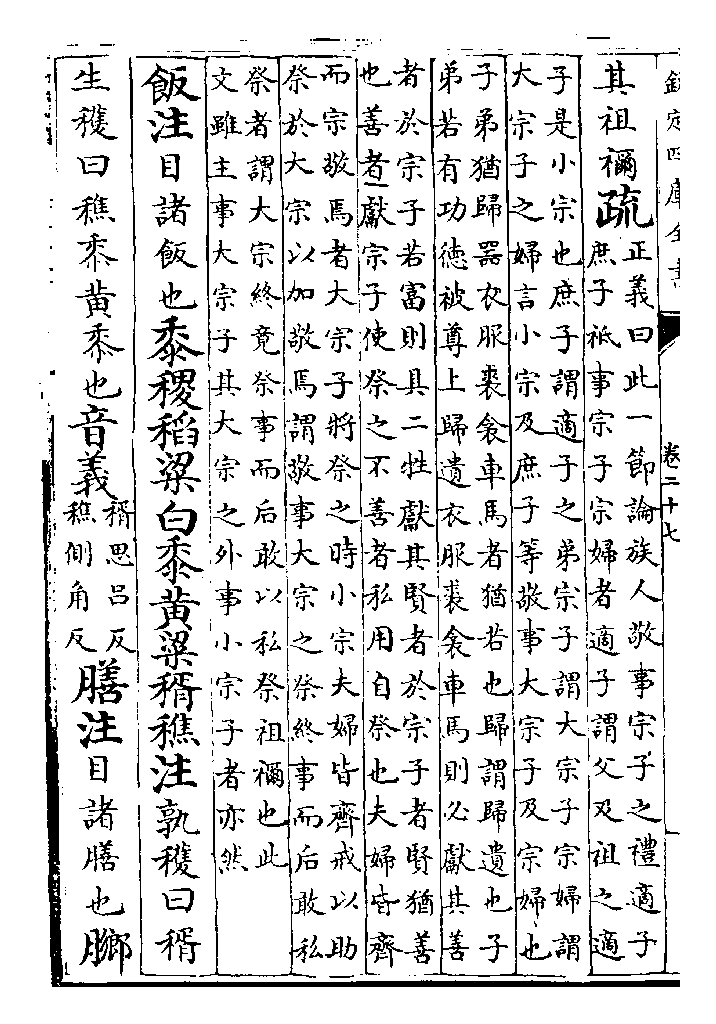 欽定四庫全書
卷二十七
其祖禰疏
正義曰此一節論族人敬事宗子之禮適子
庶子祇事宗子宗婦者適子謂父及祖之適
子是小宗也庶子謂適子之弟宗子謂大宗子宗婦謂
大宗子之婦言小宗及庶子等敬事大宗子及宗婦也
子弟猶歸器衣服裘衾車馬者猶若也歸謂歸遺也子
弟若有功德被尊上歸遺衣服裘衾車馬則必獻其善
者於宗子若富則具二牲獻其賢者於宗子者賢猶善
也善者獻宗子使祭之不善者私用自祭也夫婦皆齊
而宗敬焉者大宗子將祭之時小宗夫婦皆齊戒以助
祭於大宗以加敬焉謂敬事大宗之祭終事而后敢私
祭者謂大宗終竟祭事而后敢以私祭祖禰也此
文雖主事大宗子其大宗之外事小宗子者亦然
飯注目諸飯也黍稷稻粱白黍黄粱稰穛注孰穫曰稰
生穫曰穛黍黄黍也音義
稰思呂反
穛側角反
膳注目諸膳也膷